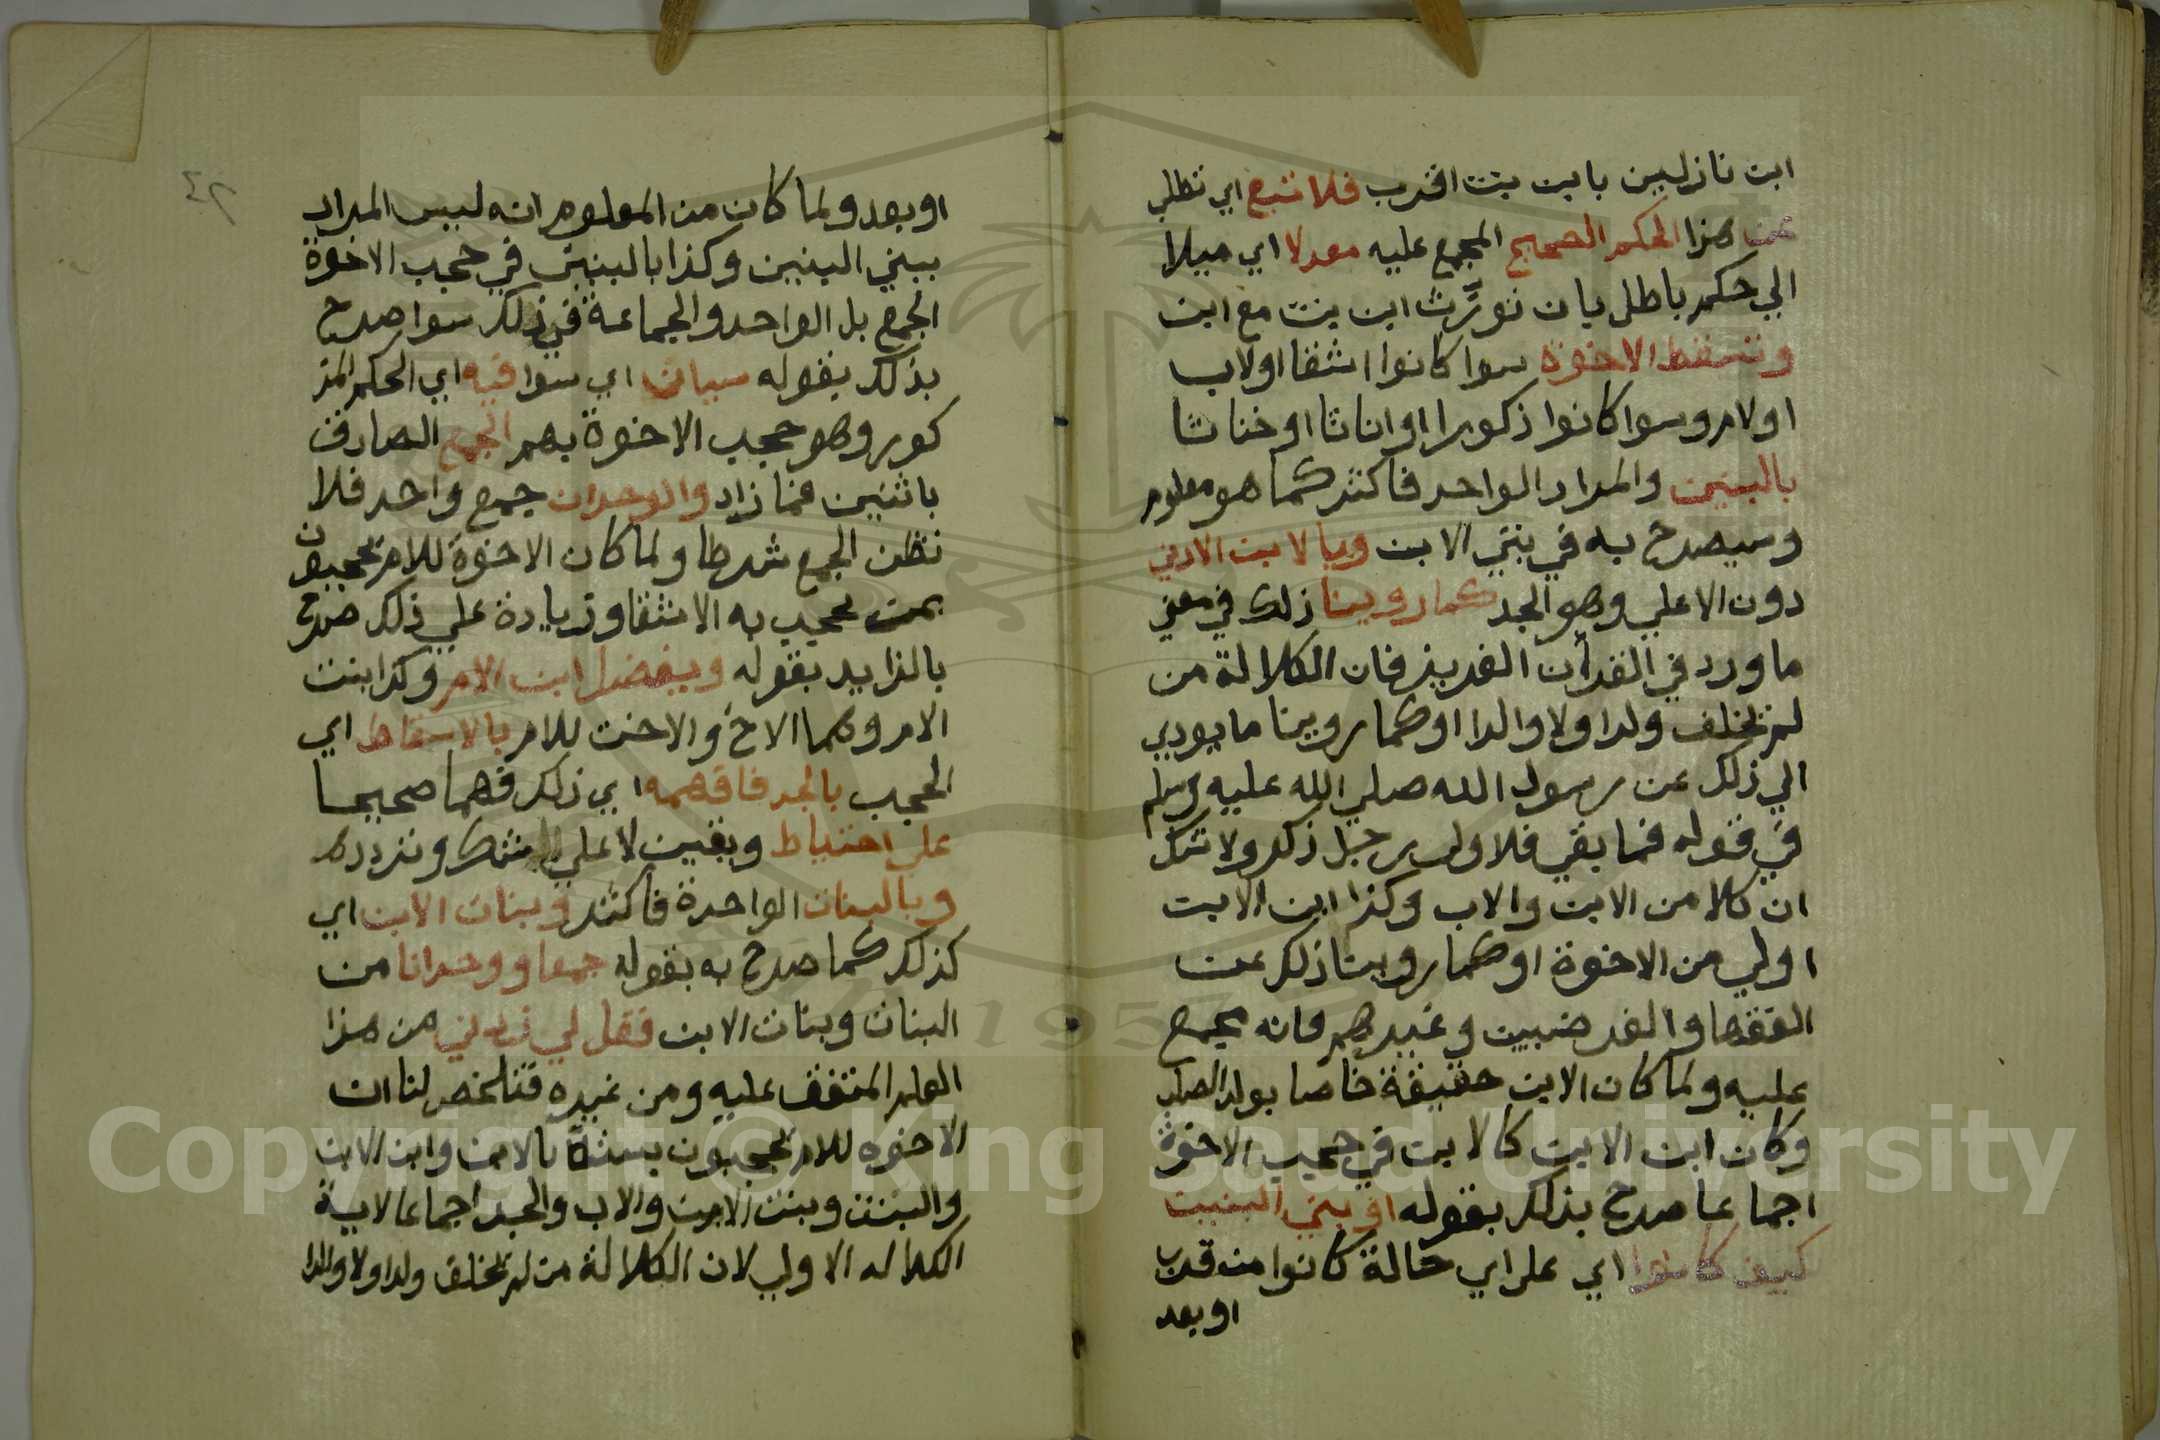 ابن نازلين بابن بنت اقرب فلا تبغ اي تطلب
عن هذا الحكم الصحيح المجمع عليه معدلا اي ميلا
الي حكم باطل بان تورّث ابن بنت مع ابن
وتسقط الاخوة سوا كانوا اشقا اولاب
اولام وسوا كانوا ذكورا اواناثا اوخناثا
بالبنين والمراد الواحد فاكثر كما هو معلوم
وسيصرح به في بني الابن وبالابن الادني
دون الاعلي وهو الجد كما روينا ذلك في معني
ما ورد في القرآن العزيز فان الكلالة من
لم يخلف ولدا ولا والدا اوكما روينا ما يودي
الي ذلك عن رسول الله صلي الله عليه وسلم
في قوله فما بقي فلاولي رجل ذكر ولا شك
ان كلا من الابن والاب وكذا ابن الابن
اولي من الاخوة اوكما روينا ذلك عن
الفقها والفرضيين وغيرهم فانه مجمع
عليه ولما كان الابن حقيقة خاصا بولد الصلب
وكان ابن الابن كالابن في حجب الاخوة
اجماعا صرح بذلك بقوله او بني البنين
كيف كانوا اي علي اي حالة كانوا من قرب
اوبعد
٤٢
اوبعد ولما كان من المعلوم انه ليس المراد
ببني البنين وكذا بالبنين في حجب الاخوة
الجمع بل الواحد والجماعة في ذلك سوا صرح
بذلك بقوله سيان اي سوا فيه اي الحكم المذ
كور وهو حجب الاخوة بهم الجمع الصادق
باثنين فما زاد والوحدان جمع واحد فلا
تظن الجمع شرطا ولما كان الاخوة للام يحجبون
بمن يحجب به الاشقا وزيادة علي ذلك صرح
بالزايد بقوله ويفضل ابن الام وكذا بنت
الام وهما الاخ والاخت للام بالاسقاط اي
الحجب بالجد فافهمه اي ذلك فهما صحيحا
علي احتياط ويقين لا علي شك وتردد
وبالبنات الواحدة فاكثر وبنات الابن اي
كذلك كما صرح به بقوله جمعا ووحدانا من
البنات وبنات الابن فقل لي زدني من هذا
العلم المتفق عليه ومن غيره فتلخص لنا ان
الاخوه للام يحجبون بستة بالابن وابن الابن
والبنت وبنت الابن والاب والجد اجماعا لاية
الكلاله الاولي لان الكلالة من لم يخلف ولدا ولا والدا
Copyright © King Saud University
1957